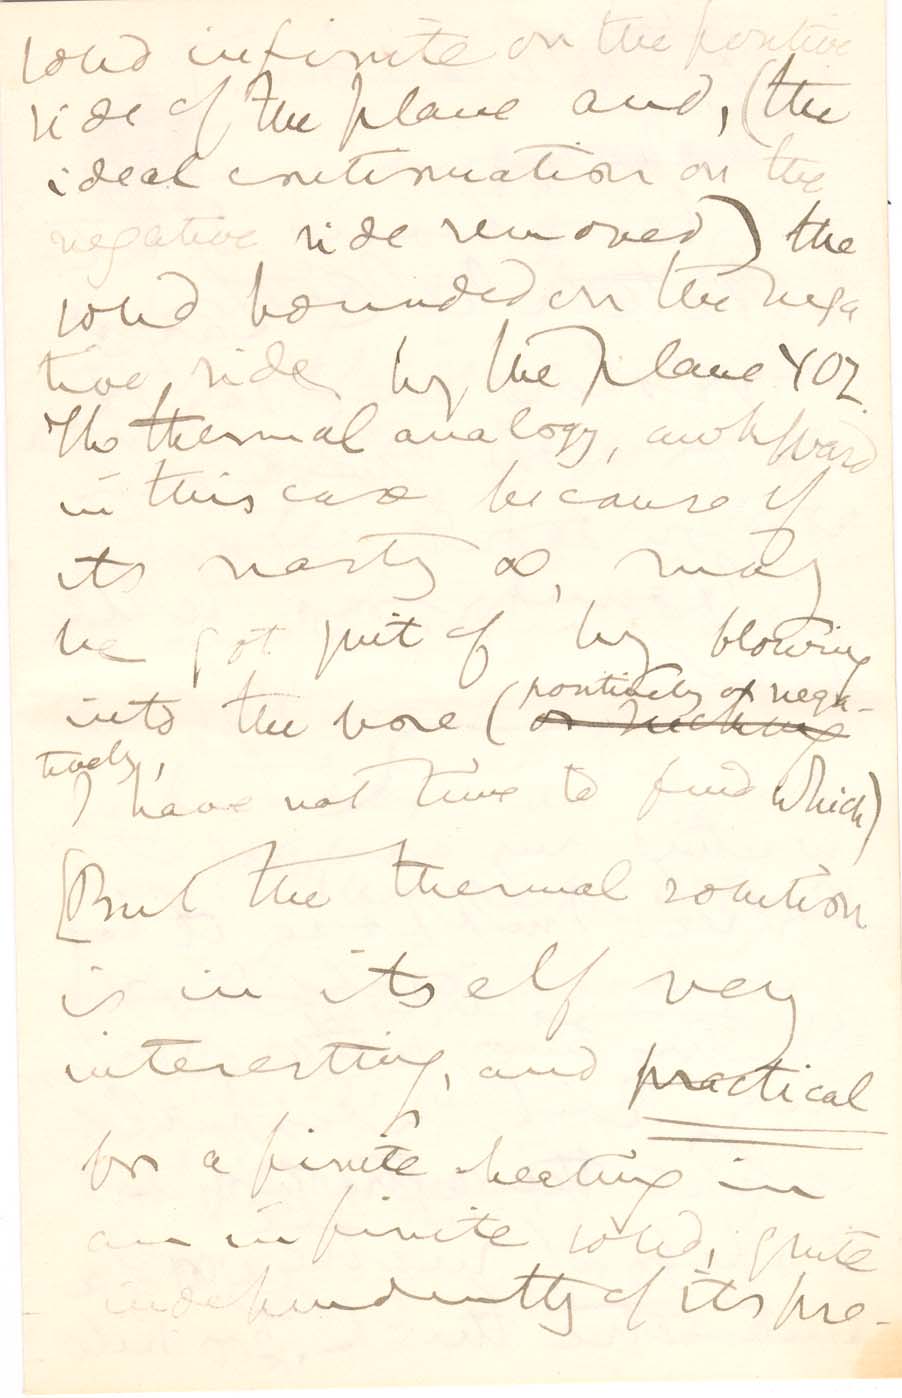 solid infinite on the positive
side of the plane and, (the
ideal continuation on the
negative side removed) the
solid bounded on the nega
tive side, by the plane YOZ.
The thermal analogy, awkward
in this case because of
its nasty ∞, may
be got quit of by blowing
into the bore (positively or nega-
or sucking
tively,
I have not time to find which)
[But the thermal solution
is in itself very
interesting, and practical
for a finite heating in
an infinite solid, quite
independently of its pre-